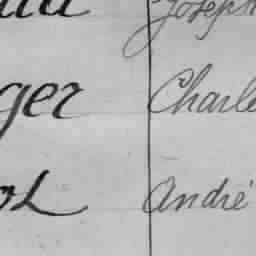 Joseph
ger Charle
ol André